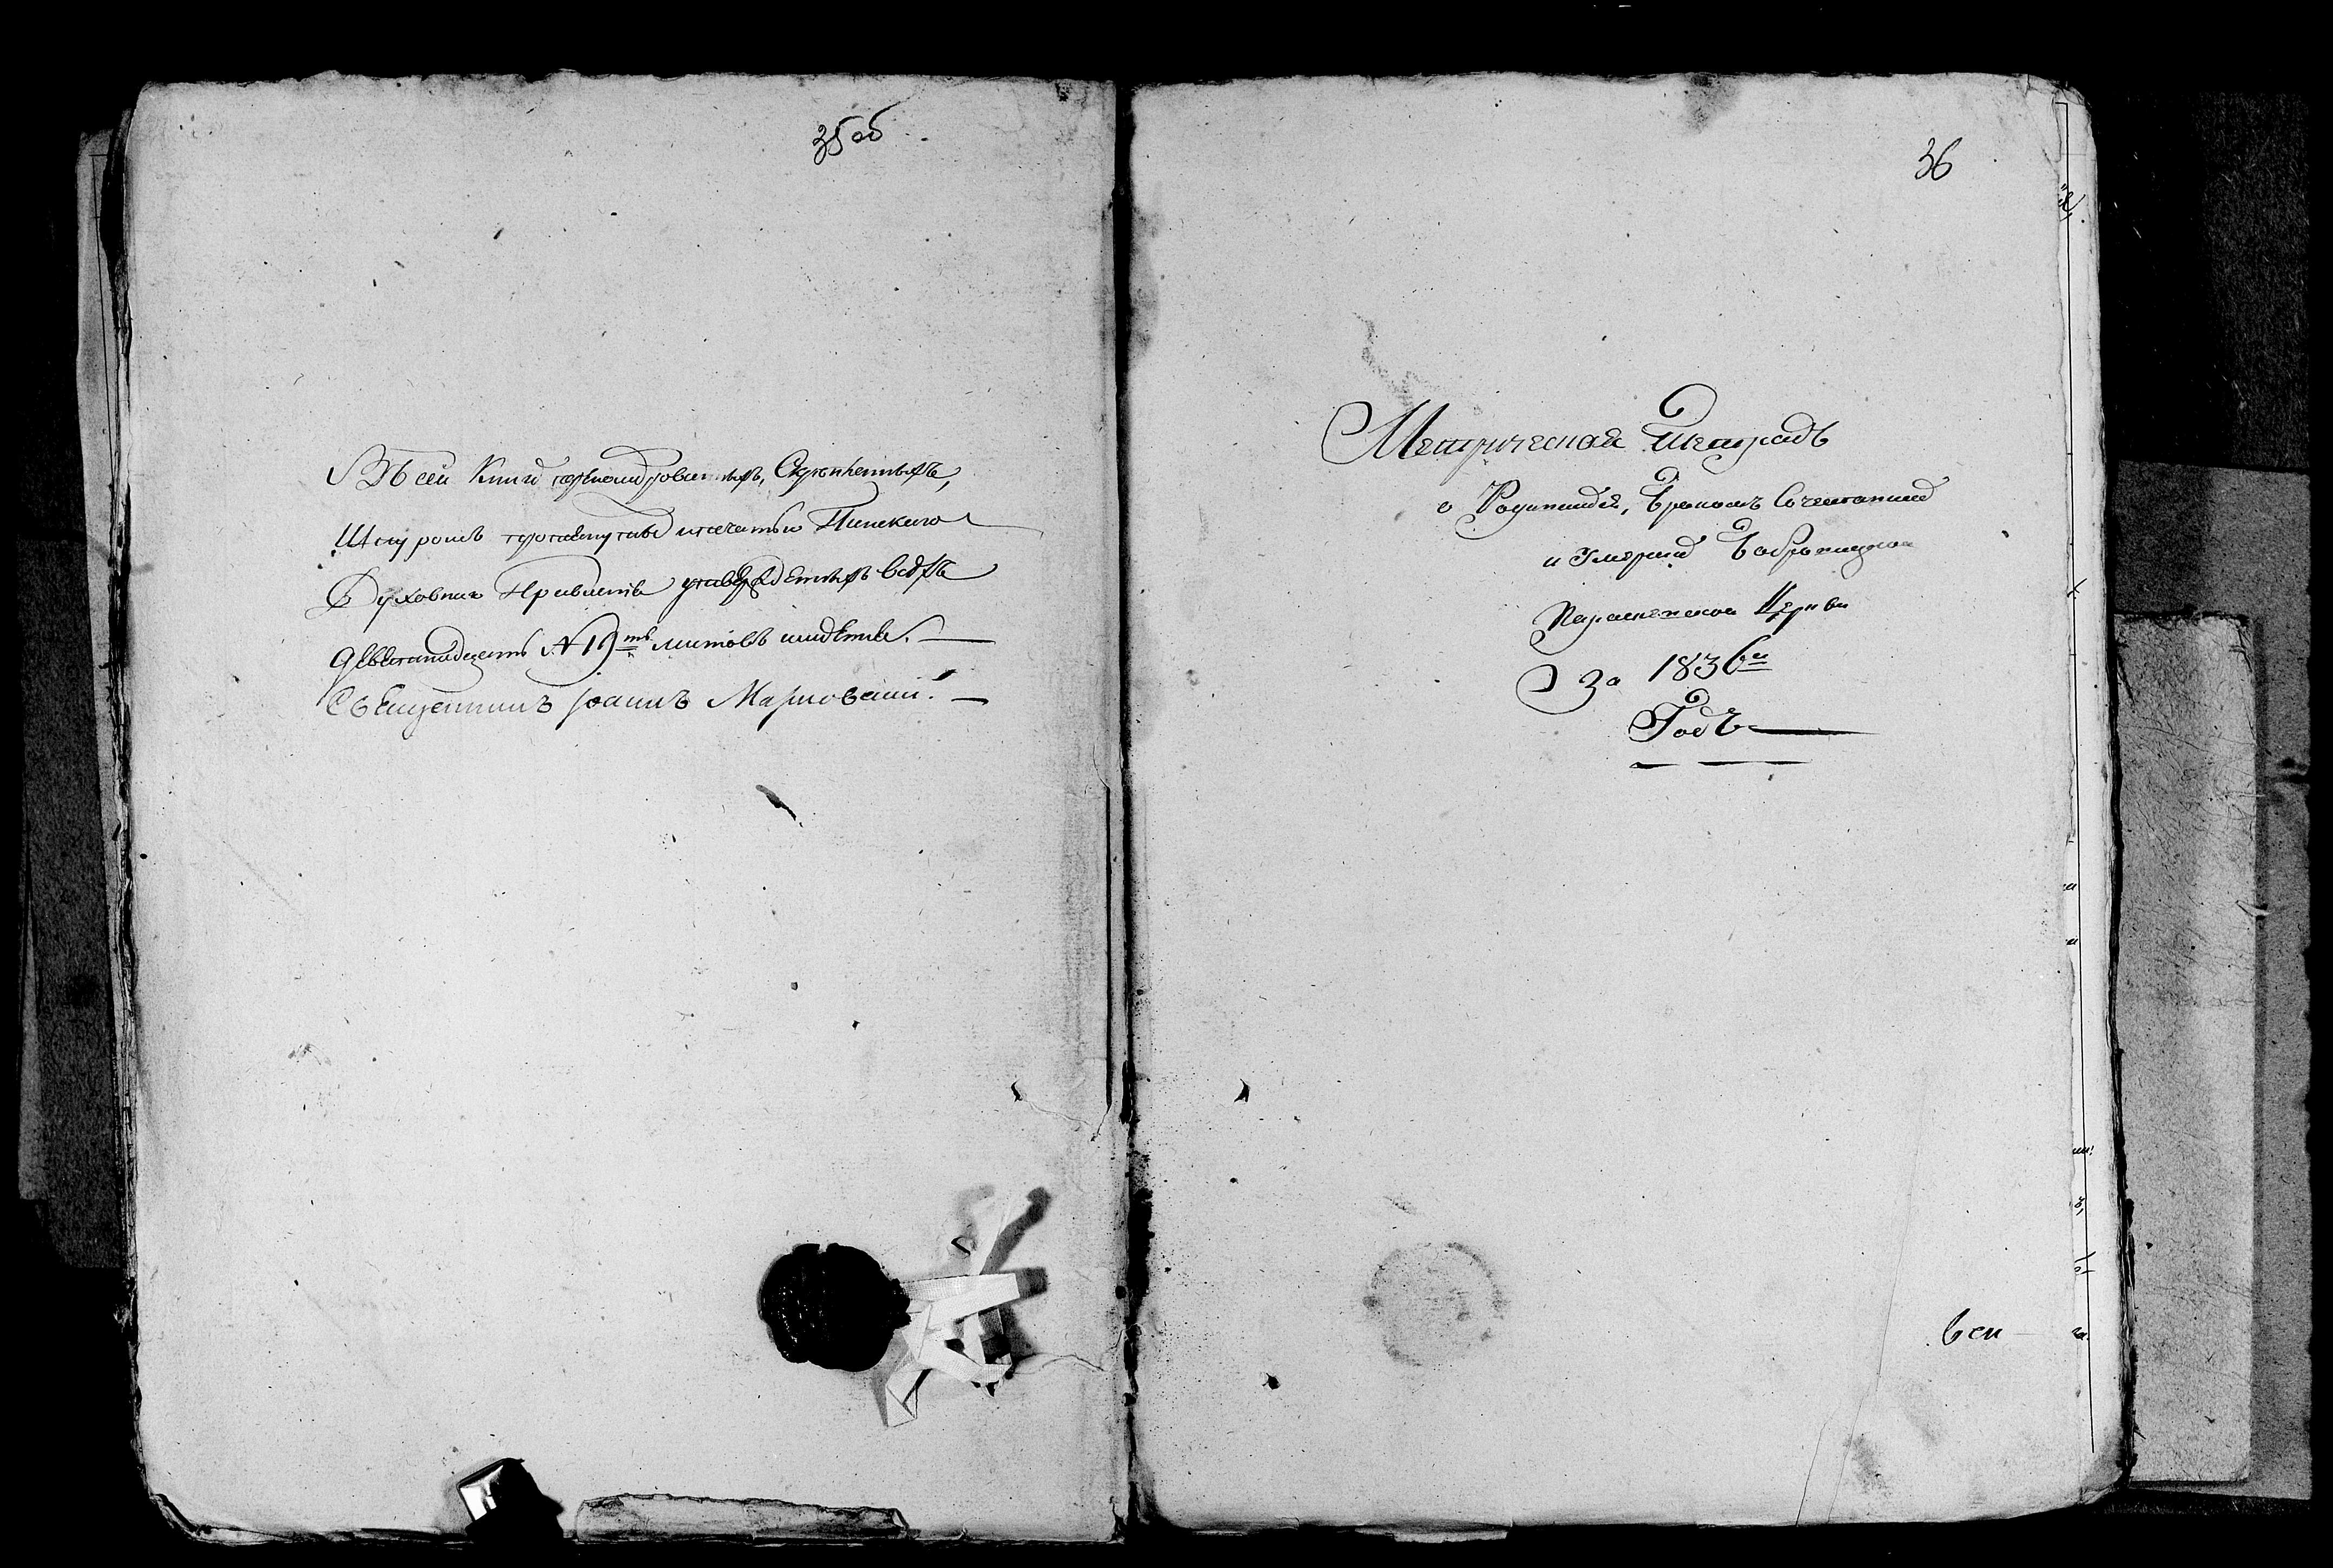 35 об
Въ сей Книгѣ пронумерованныхъ, Скрѣпленныхъ,
Шнуромъ протянутыхъ и печатью Пинскаго
Духовнаго Правленія утвержденныхъ всѣхъ
девятнадцать №19ть листовъ имѣетъ.
Священникъ Іоаннъ Марковскій.
36
Метрическая тетрадь
о Родившихся, Бракомъ Сочетавшихся
и Умершихъ
Церкви
За 1836й
Годъ